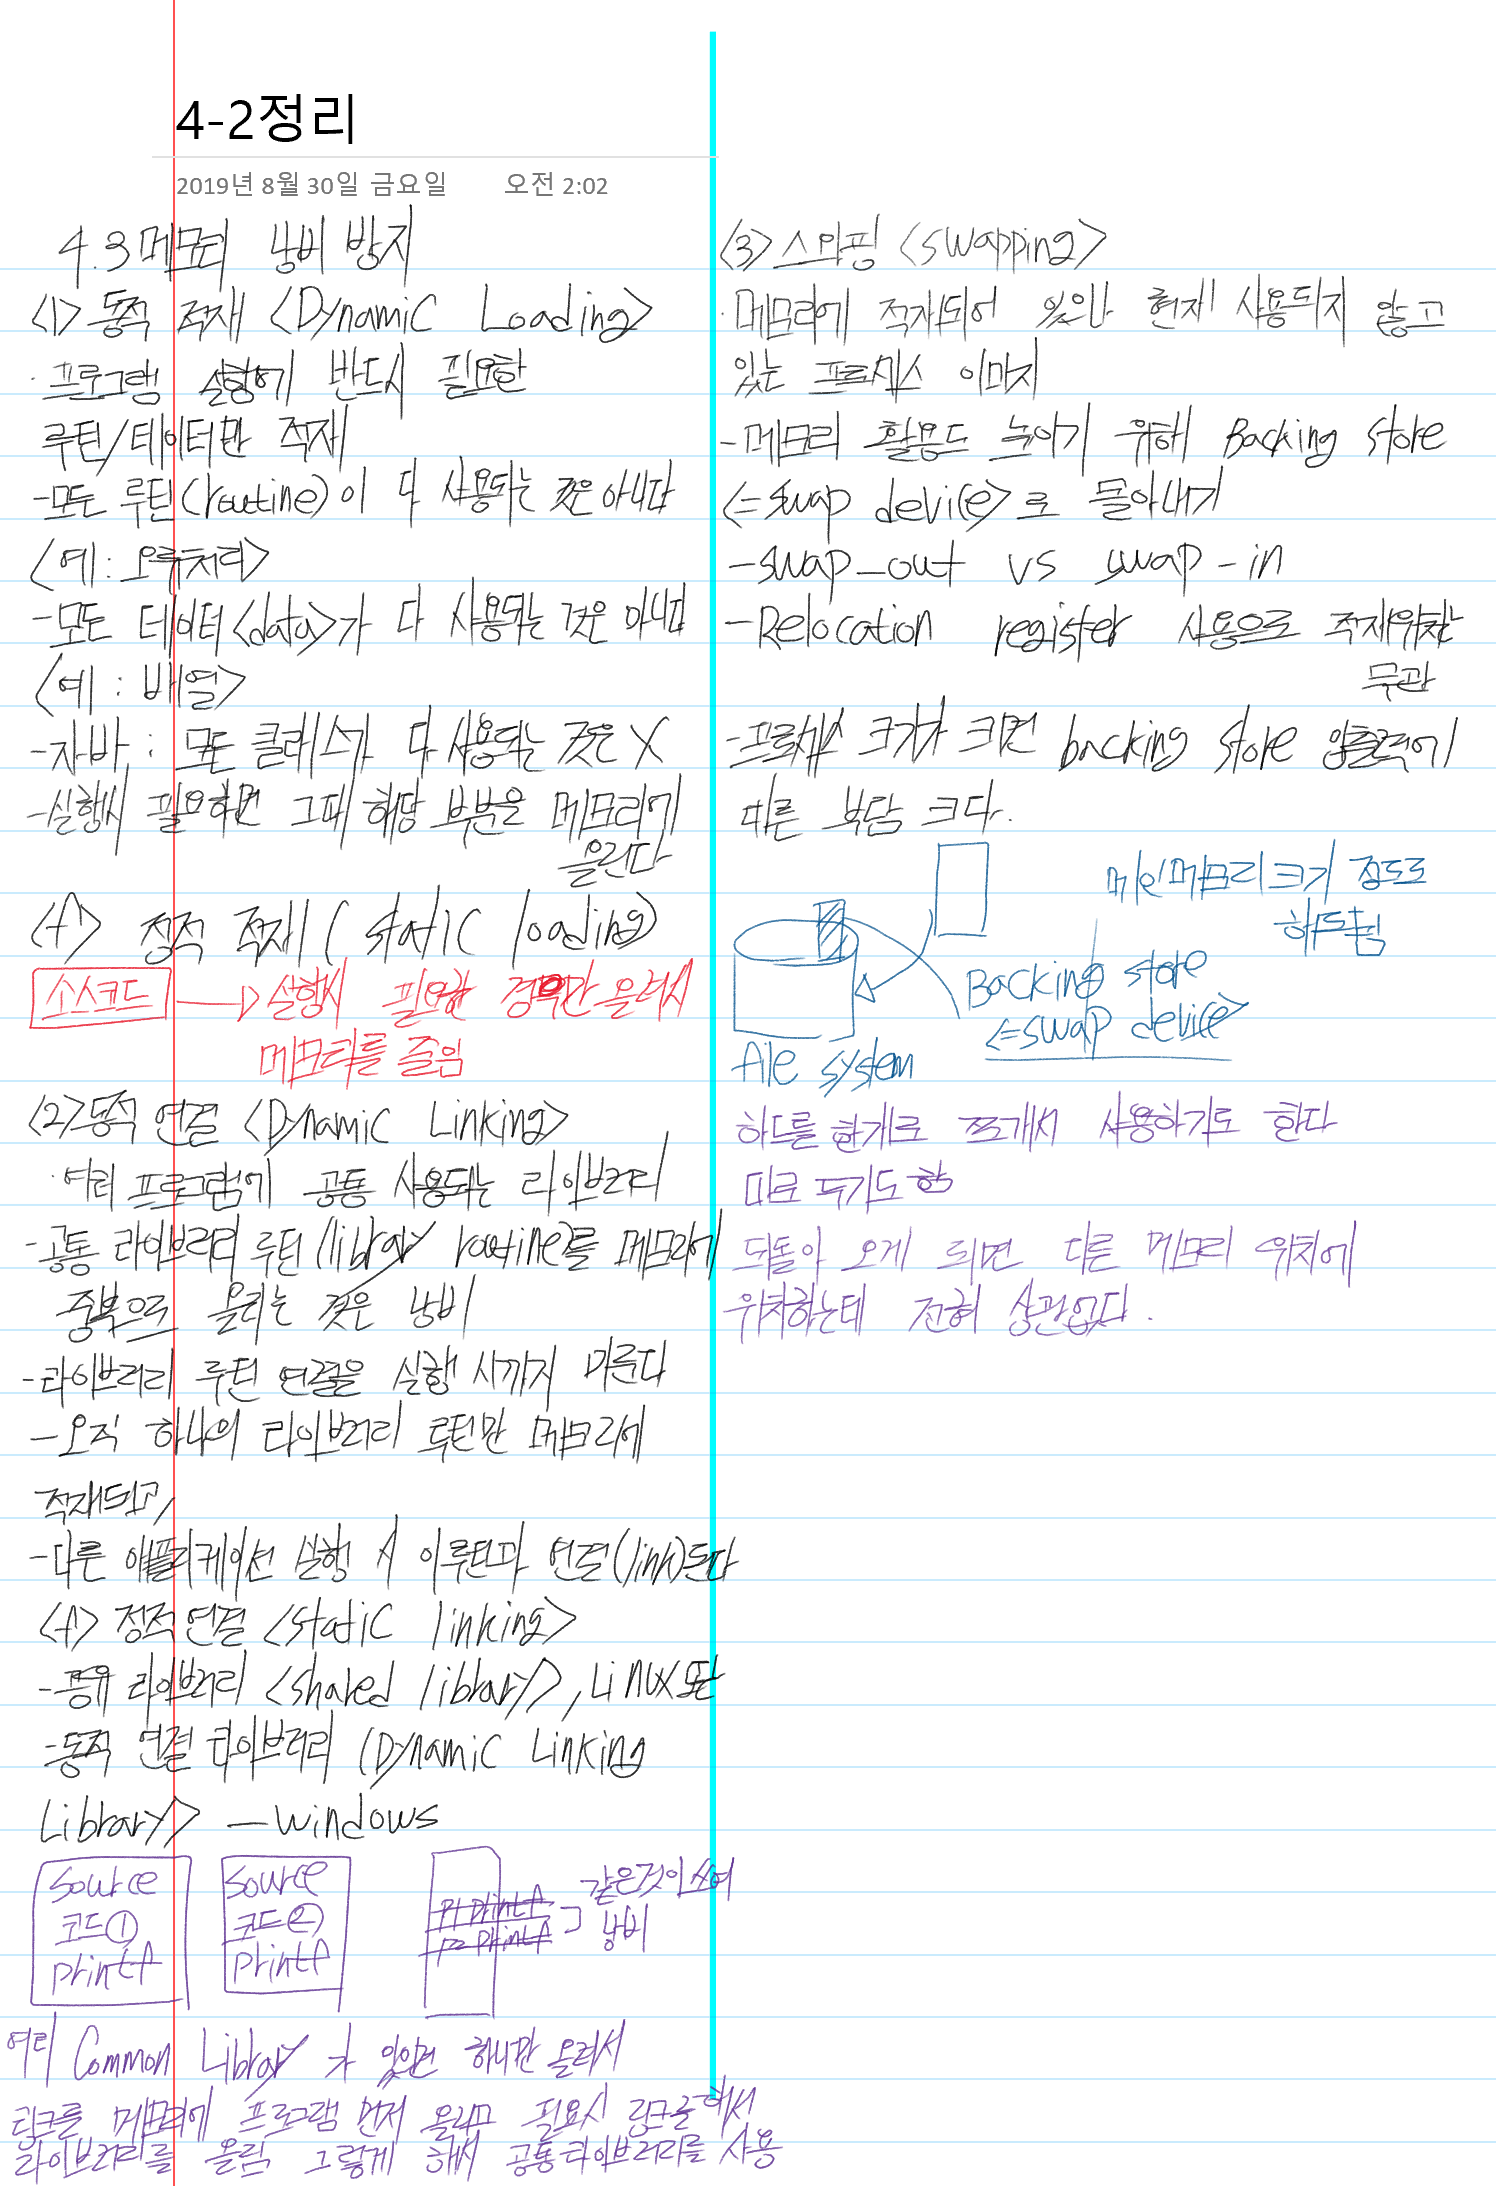 4-2정리
2019년 8월 30일 금요일 오전 2:02
4.3 메모리 낭비 방지
<1> 동적 적재 <Dynamic Loading>
· 프로그램 실행에 반드시 필요한
루틴/데이터만 적재
-모든 루틴(routine)이 다 사용되는 것은 아니다
<예 : 오류처리>
-모든 데이터<data>가 다 사용되는 것은 아니다
<예 : 배열>
-자바 : 모든 클래스가 다 사용되는 것은 X
-실행시 필요하면 그때 해당 부분을 메모리에
올린다
정적 적재 (static loading)
소스코드 → 실행시 필요한 경우만 올려서
메모리를 줄임
<2> 동적 연결 <Dynamic Linking>
· 여러 프로그램에 공통 사용되는 라이브러리
-공통 라이브러리 루틴(library routine)를 메모리에
중복으로 올리는 것은 낭비
-라이브러리 루틴 연결을 실행 시까지 미룬다
-오직 하나의 라이브러리 루틴만 메모리에
적재되고,
-다른 애플리케이션 실행 시 이루틴과 연결(link)된다
정적연결 <static linking>
-공유 라이브러리 <shared library>, Linux또는
-동적 연결 라이브러리 (Dynamic Linking
Library> -windows
source
코드①
printf
source
코드②
printf
P1 printf
P2 printf
같은것이 쓰여
낭비
여러 Common Library가 있으면 하나만 올려서
링크를 메모리에 프로그램 먼저 올리고 필요시 링크를 해서
라이브러리를 올림 그렇게 해서 공통라이브러리를 사용
<3> 스와핑 <swapping>
· 메모리에 적재되어 있으나 현재 사용되지 않고
있는 프로세스 이미지
-메모리 활용도 높이기 위해 Backing store
<=swap device>로 몰아내기
-swap_out vs swap-in
-Relocation register 사용으로 적재위치는
무관
-프로세스 크기가 크면 backing store 입출력에
따른 부담 크다.
메인메모리크기 정도로
Backing store
<=swap device>
file system
하드를 한개로 쪼개서 사용하기도 한다
따로 두기도 함
되돌아 오게 되면 다른 메모리 위치에
위치하는데 전혀 상관없다.